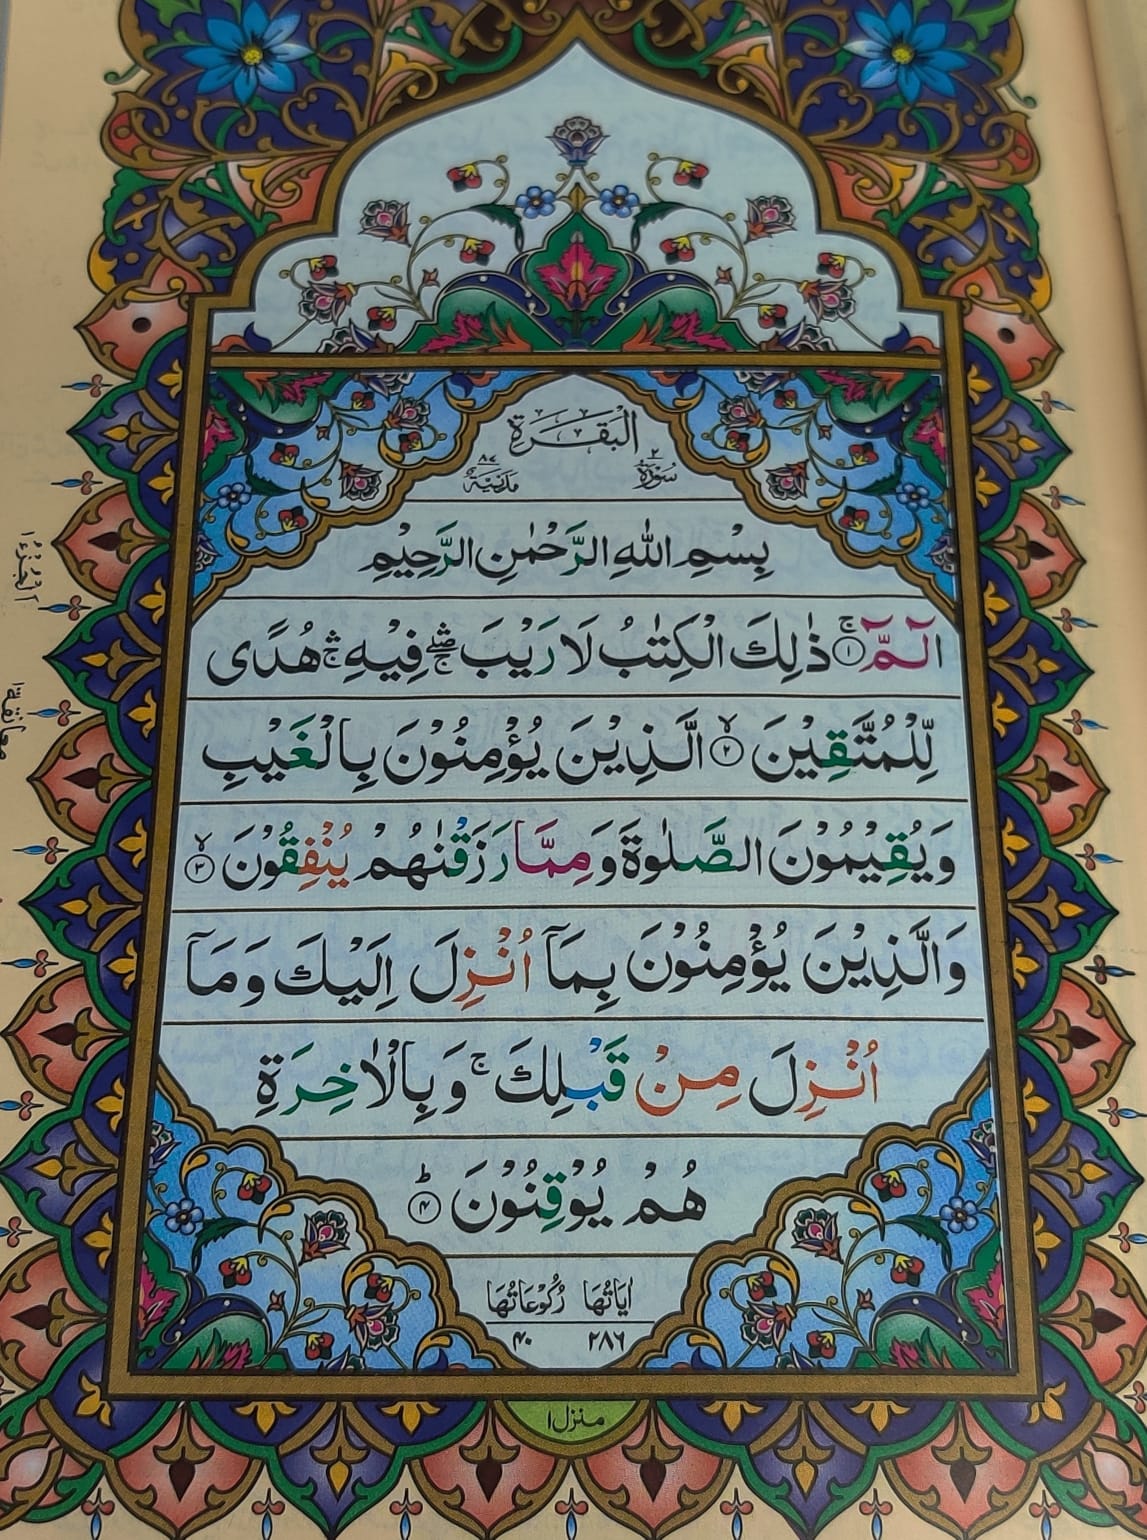 الْبَقَرَة
سُوْرَةُ ٢ مَدَنِيَّةٌ ٨٧
بِسْمِ اللّٰهِ الرَّحْمٰنِ الرَّحِيْمِ
الٓمّٓ ۚ﴿١﴾ ذٰلِكَ الْكِتٰبُ لَا رَيْبَ ۛۖ فِيْهِ ۛۚ هُدًى
لِّلْمُتَّقِيْنَ ۙ﴿٢﴾ الَّذِيْنَ يُؤْمِنُوْنَ بِالْغَيْبِ
وَيُقِيْمُوْنَ الصَّلٰوةَ وَمِمَّا رَزَقْنٰهُمْ يُنْفِقُوْنَ ۙ﴿٣﴾
وَالَّذِيْنَ يُؤْمِنُوْنَ بِمَآ اُنْزِلَ اِلَيْكَ وَمَآ
اُنْزِلَ مِنْ قَبْلِكَ ۚ وَبِالْاٰخِرَةِ
هُمْ يُوْقِنُوْنَ ؕ﴿٤﴾
اٰيَاتُهَا رُكُوْعَاتُهَا
٢٨٦ ٤٠
منزل ١